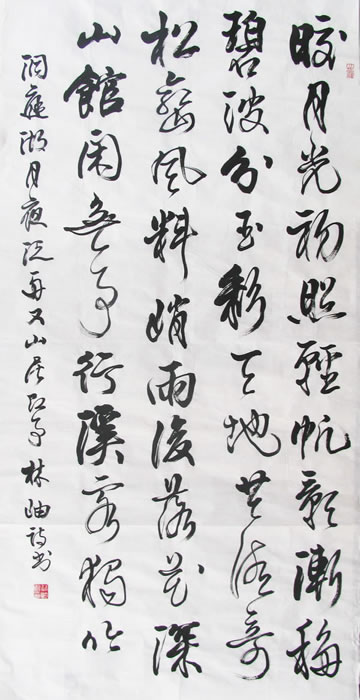 皎月光初照輕帆影漸移
碧波分玉彩天地共清奇
松巒風料峭雨後落花深
山館閑無事行溪客獨吟
洞庭湖月夜泛舟又山居即事 林岫詩書